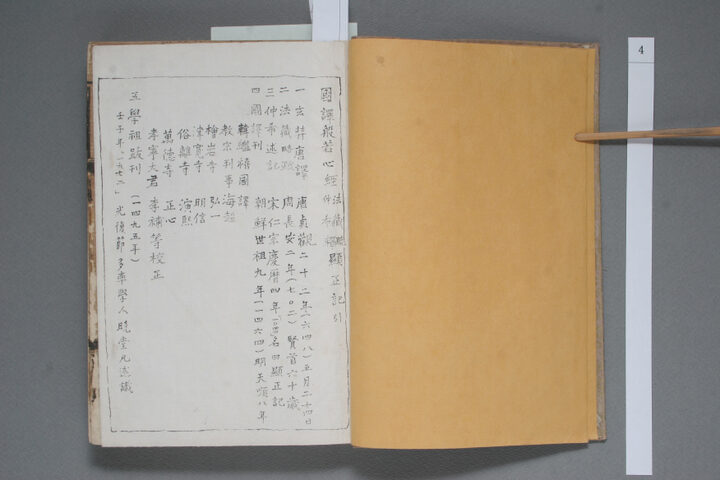 國譯般若心經 法藏略疏 仲希 顯正記 引
一 玄奘唐譯 唐貞觀二十二年(六四八)五月二十四日
二 法藏略疏 周長安二年(七〇二) 賢首六十歲
三 仲希述記 宋仁宗慶曆四年 名曰顯正記
四 國譯刊 朝鮮世祖九年(一四六四)明天順八年
韓繼禧國譯
教宗判事 海超
檜岩寺 弘一
津寬寺 明信
俗離寺 演熙
萬德寺 正心
孝寧大君 李補等校正
五 學祖跋刊 (一四九五年)
壬子年(一九七二) 光復節 多率學人 曉堂凡述識
4